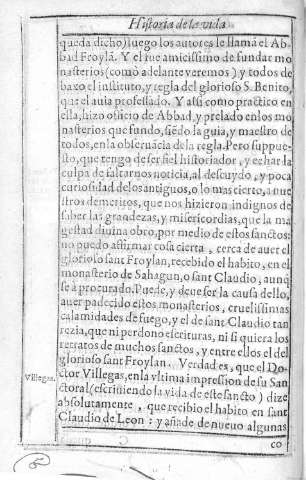 Historia de la vida
queda dicho) luego los autores le llamã el Ab-
bad Froylã. Y el fue amicissimo de fundar mo
nasterios (como adelante veremos) y todos de
baxo el instituto, y regla del glorioso S. Benito,
que el auia professado. Y assi como practico en
ella, hizo oficio de Abbad, y prelado en los mo
nasterios que fundo, siẽdo la guia, y maestro de
todos, en la obseruãcia dela regla. Pero suppue-
sto, que tengo de ser fiel historiador, y echar la
culpa de faltarnos noticia, al descuydo, y poca
curiosidad de los antiguos, o lo mas cierto, a nue
stros demeritos, que nos hizieron indignos de
saber las grandezas, y misericordias, que la ma
gestad diuina obro, por medio de estos sanctos:
no puedo affirmar cosa cierta, cerca de auer el
glorioso sant Froylan, recebido el habito, en el
monasterio de Sahagun, o sant Claudio, aunq̃
se à procurado. Puede, y deue ser la causa dello,
auer padecido estos monasterios, cruelissimas
calamidades de fuego, y el de sant Claudio tan
rezia, que ni perdono escrituras, ni si quiera los
retratos de muchos sanctos, y entre ellos el del
glorioso sant Froylan. Verdad es, que el Do-
Villegas.
ctor Villegas, en la vltima impression de su San
ctoral (escriuiendo la vida de este sancto) dize
absolutamente, que recibio el habito en sant
Claudio de Leon: y añade de nueuo algunas
co